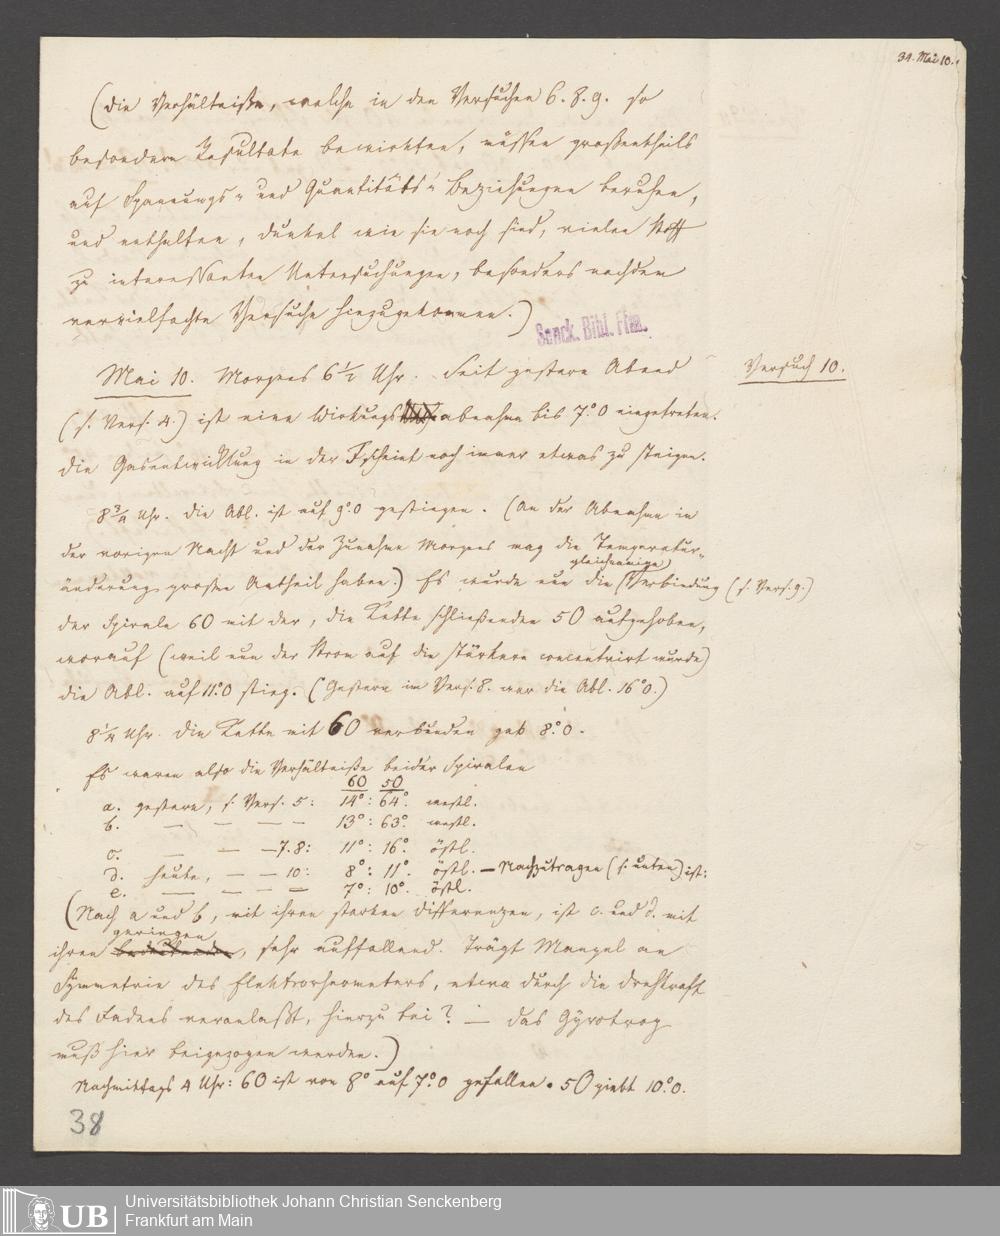 34. Mai 10.
(Die Verhältniße, welche in den Versuchen 6. 8. 9. so
besondern Resultate bewirkten, müssen großentheils
auf Spannungs- und Quantitäts-Beziehungen beruhen,
und enthalten, dunkel wie sie noch sind, vielen Stoff
zu interessanten Untersuchungen, besonders nachdem
vervielfachte Versuche hinzugekommen.)
Senck. Bibl. Ffm.
Mai 10. Morgens 6 1/2 Uhr. Seit gestern Abend
Versuch 10.
(s. Vers. 4.) ist eine Wirkungsabnahme bis 7°.0 eingetreten.
Die Gasentwicklung in der scheint noch immer etwas zu steigen.
8 3/4 Uhr. Die Abl. ist auf 9°.0 gestiegen. (An der Abnahme in
der vorigen Nacht und der Zunahme Morgens mag die Temperatur-
änderung großen Antheil haben.) Es wurde nun die gleichnamige Verbindung (s. Vers. 9.)
der Spirale 60 mit der, die Kette schließenden 50 aufgehoben,
worauf (weil nun der Strom auf die stärkere concentrirt wurde)
die Abl. auf 11°.0 stieg. (Gestern im Vers. 8. war die Abl. 16°.0.)
8 1/4 Uhr. Die Kette mit 60 verbunden gab 8°.0.
Es waren also die Verhältniße beider Spiralen
60 50
a. gestern, s. Vers. 5: 14° : 64°. westl.
b. — — — — 13° : 63°. westl.
c. — — — 7. 8: 11° : 16° östl.
d. heute, — — 10: 8° : 11°. östl. — Nachzutragen (s. unten) ist:
e. — — — — 7° : 10°. östl.
(Nach a und b, mit ihren starken Differenzen, ist c. und d. mit
ihren geringen, sehr auffallend. Trägt Mangel an
Symmetrie des Elektrorheometers, etwa durch die Drehkraft
des Fadens veranlaßt, hierzu bei? — Das Gyrotrop
muß hier beigezogen werden.)
Nachmittags 4 Uhr: 60 ist von 8° auf 7°.0 gefallen. 50 giebt 10°.0.
38
UB
Universitätsbibliothek Johann Christian Senckenberg
Frankfurt am Main